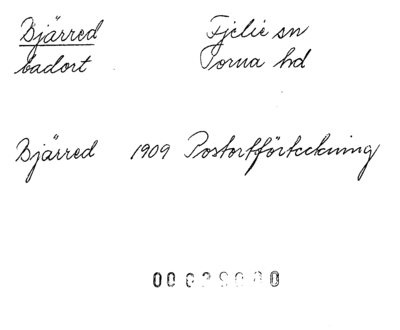 Bjärred Fjelie sn
badort Torna hd
Bjärred 1909 Postortförteckning